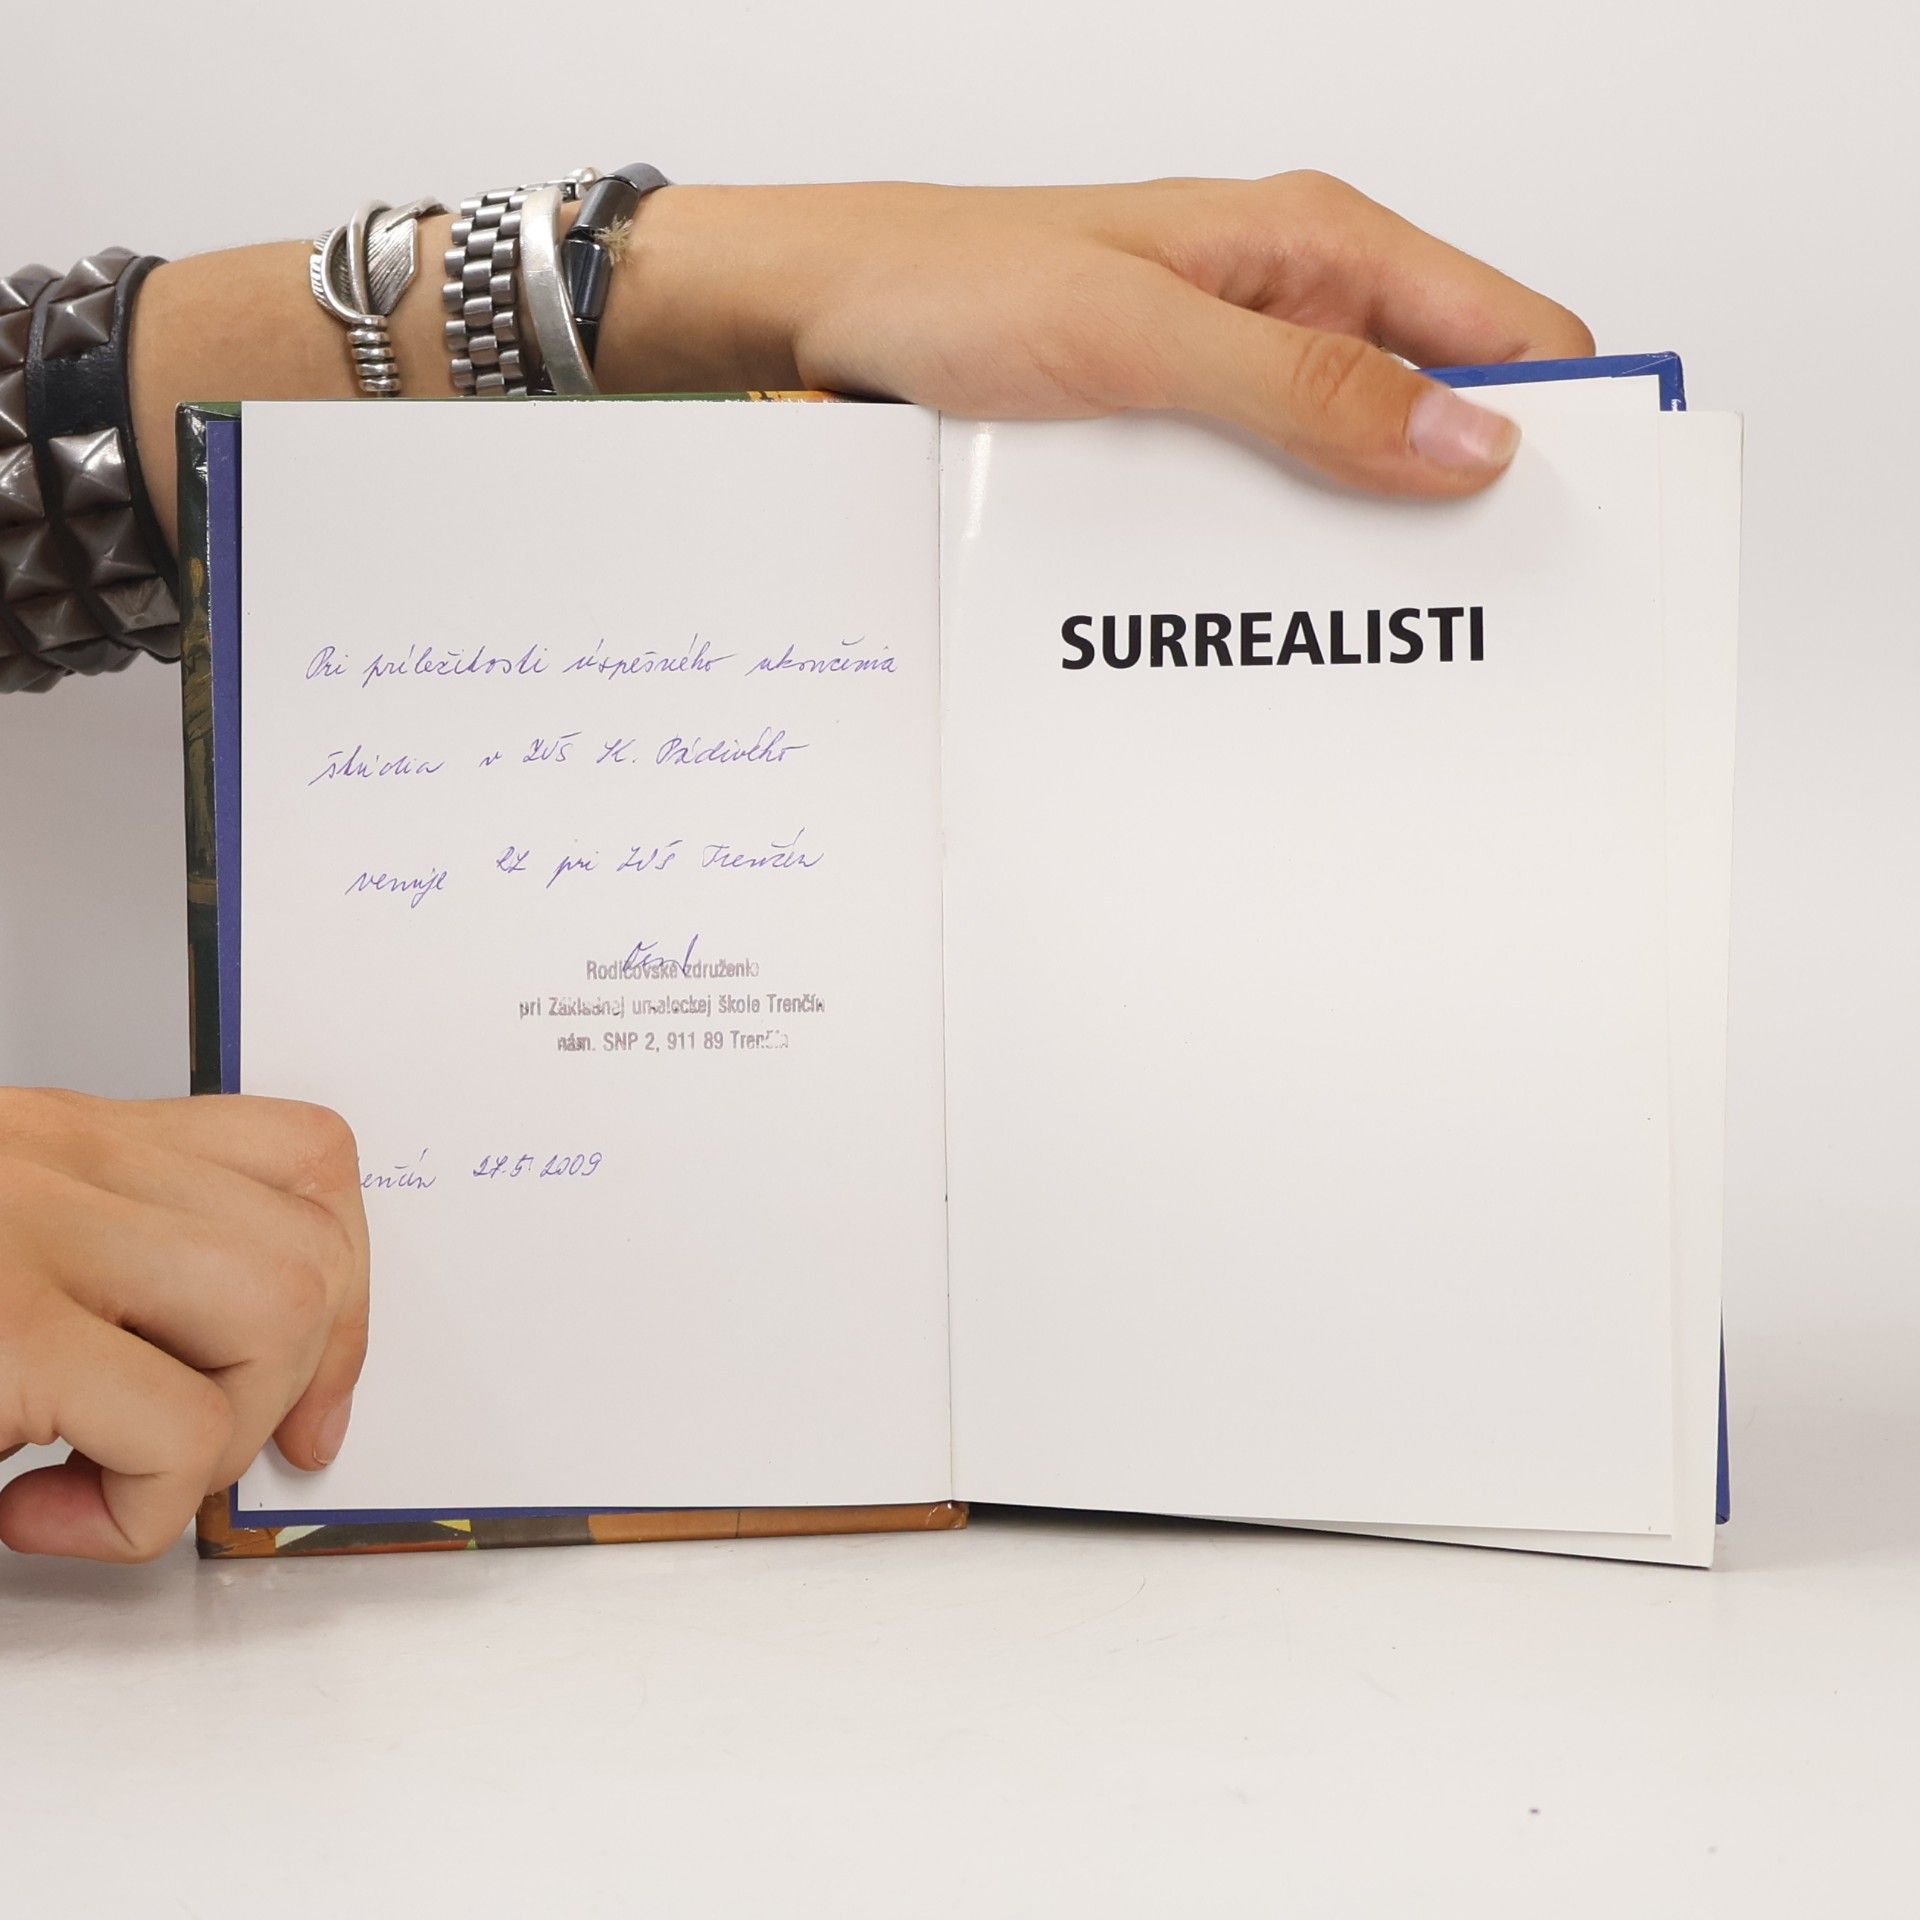 Pri príležitosti úspešného ukončenia
štúdia v ZUŠ K. Pádivého
venuje RZ pri ZUŠ Trenčín
Rodičovské združenie
pri Základnej umeleckej škole Trenčín
nám. SNP 2, 911 89 Trenčín
27.5.2009
SURREALISTI